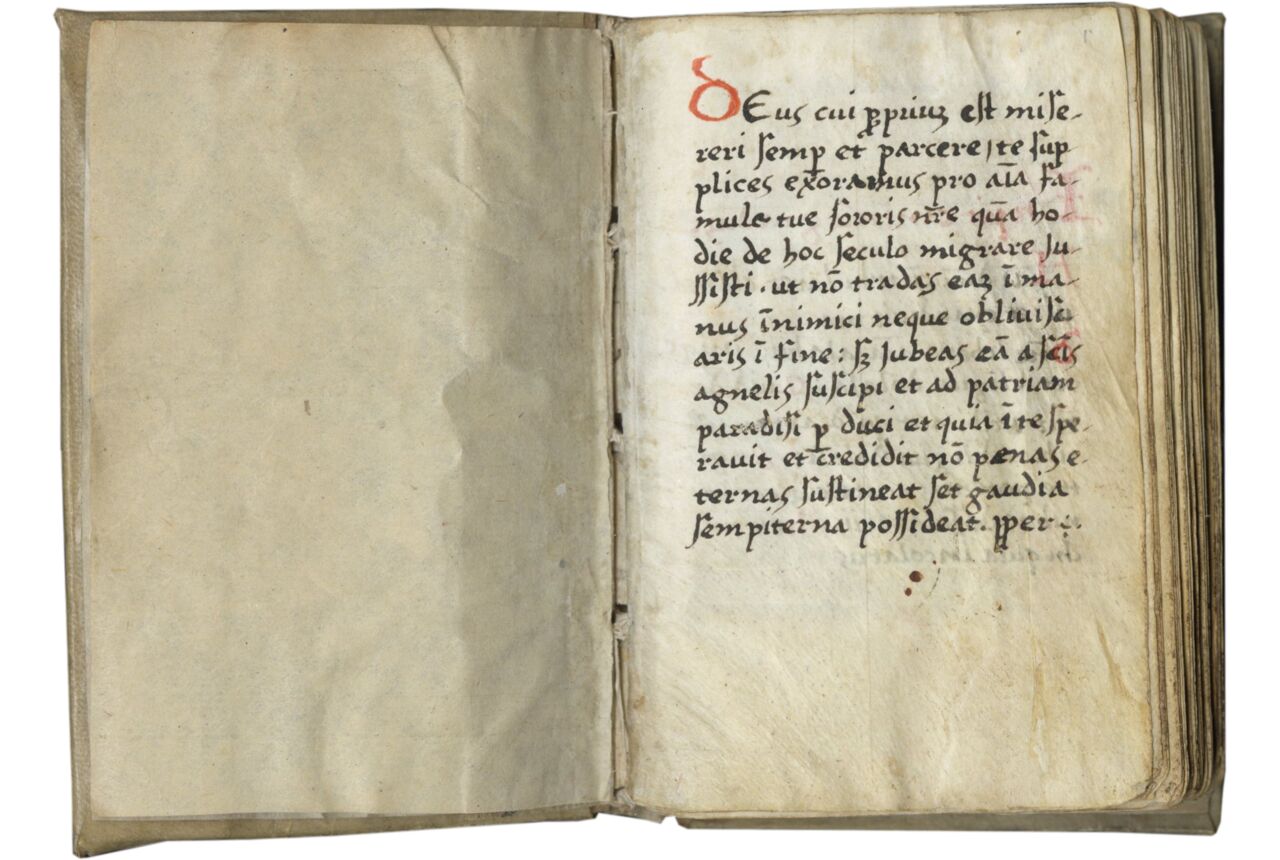 dEus cui ꝓpriuꝫ est mise-
reri semꝑ et parcere / te sup
plices exoramus pro aīa fa-
mule tue sororis nr̄e quā ho-
die de hoc seculo migrare Ju-
ssisti . ut nō tradas eaꝫ ī ma-
nus īnimici neque oblivisc
aris ī fine : sꝫ Jubeas eā a sc̄is
agnelis suscipi et ad patriam
paradisi ꝑ dūci et quia ī te spe-
ravit et credidit nō penas e-
ternas sustineat set gaudia
sempiterna possideat. ꝑper